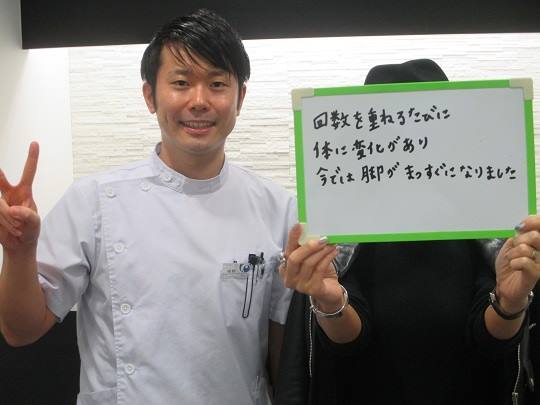 回数を重ねるたびに
体に変化があり
今では脚がまっすぐになりました